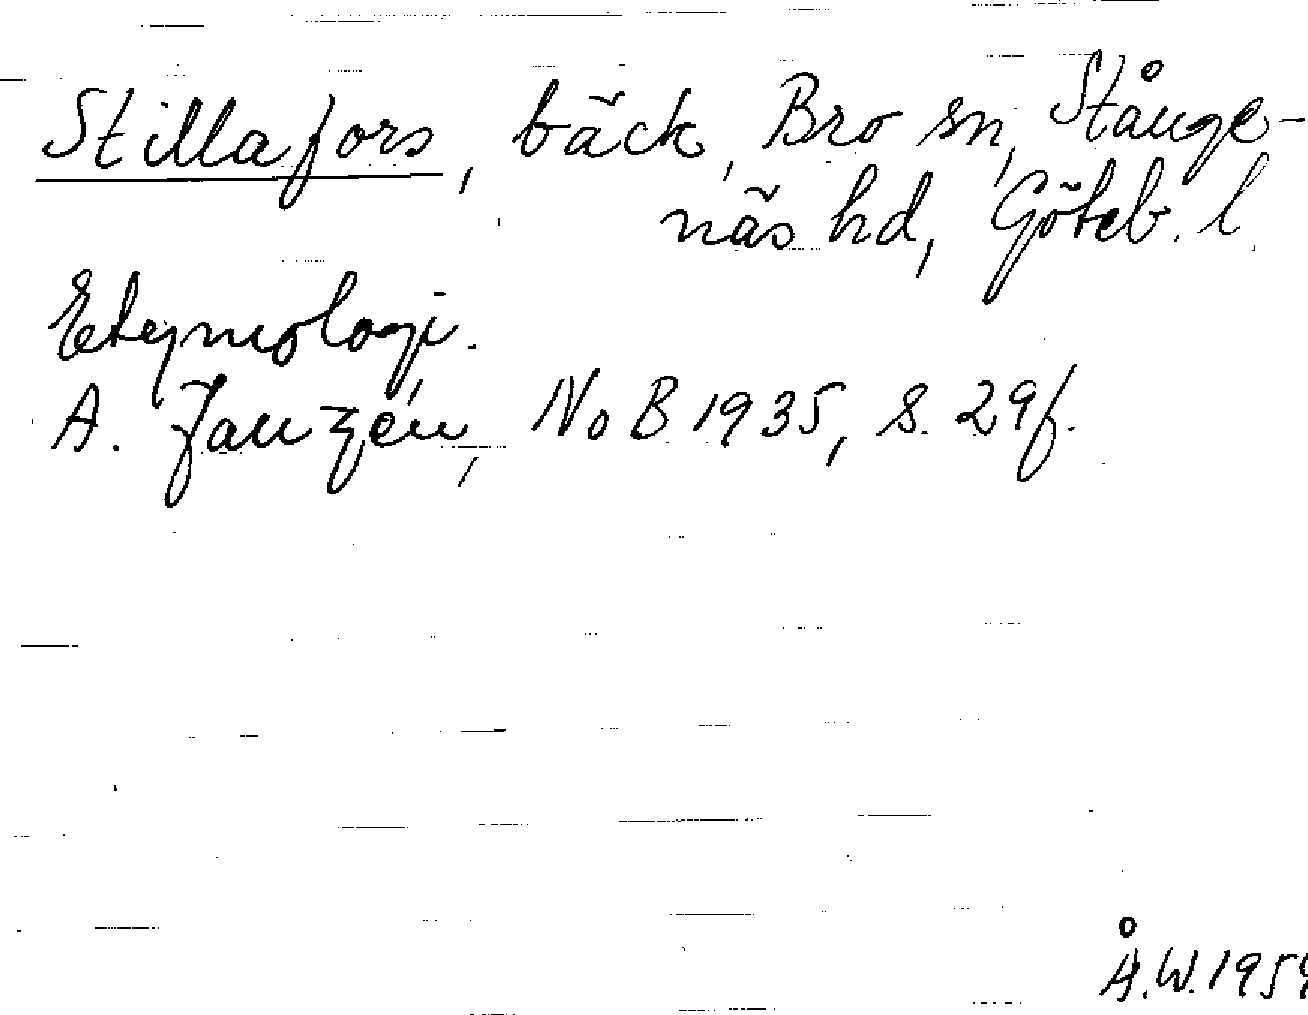 Stillafors, bäck, Bro sn, Stånge-
näs hd, Göteb. l.
Etymologi.
A. Janzén, NoB 1935, s. 29f.
Å.W.